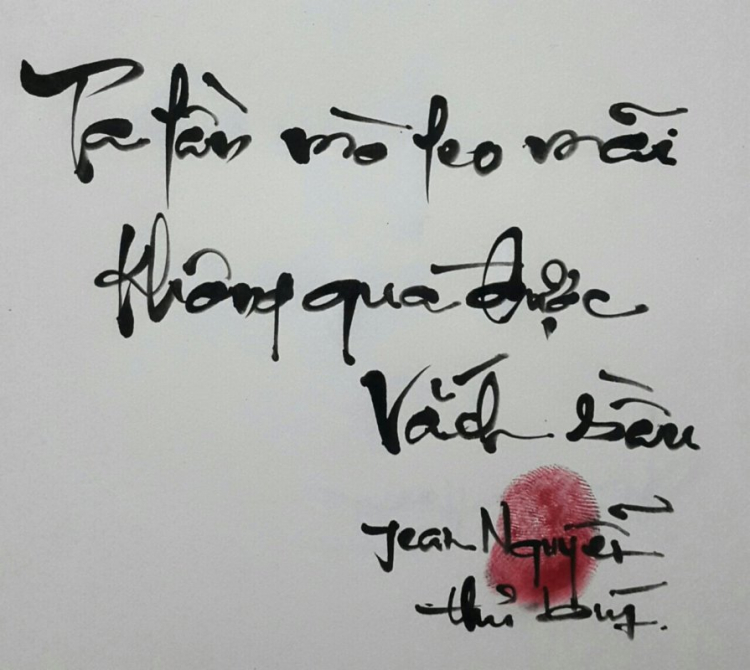 Ta tần mò leo mãi
Không qua được
Vách sầu
Jean Nguyễn
thủ bút.